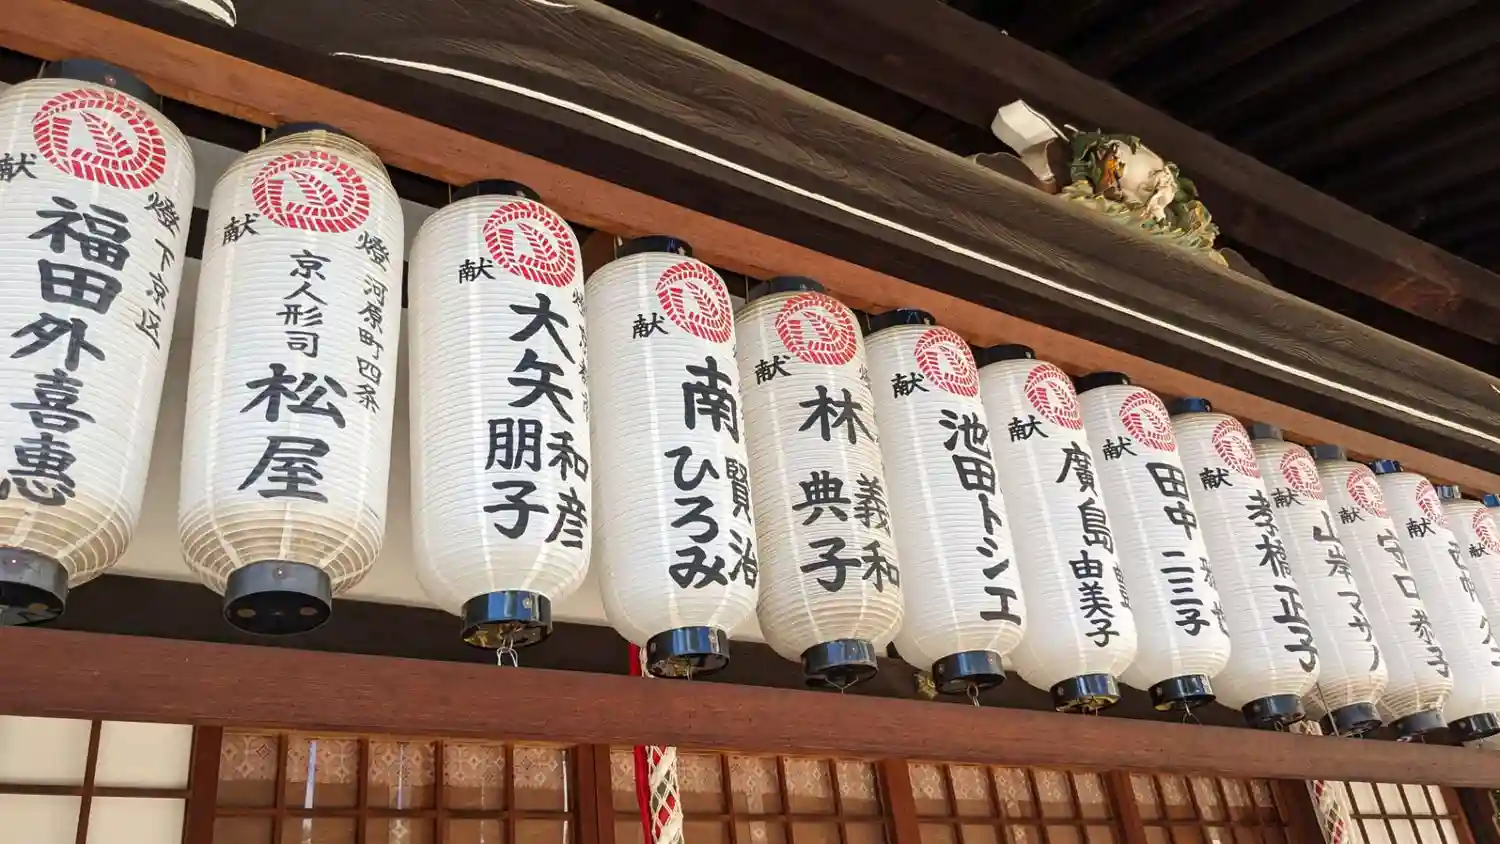 献
燈
下京区
福田外喜惠
献
燈
河原町四条
京人形司
松屋
献
大矢
和彦
朋子
献
南
賢治
ひろみ
献
林
義和
典子
献
池田トシエ
献
廣島
由美子
献
田中
二三子
献
孝橋正子
献
山岸マサノ
献
恭子
献
献